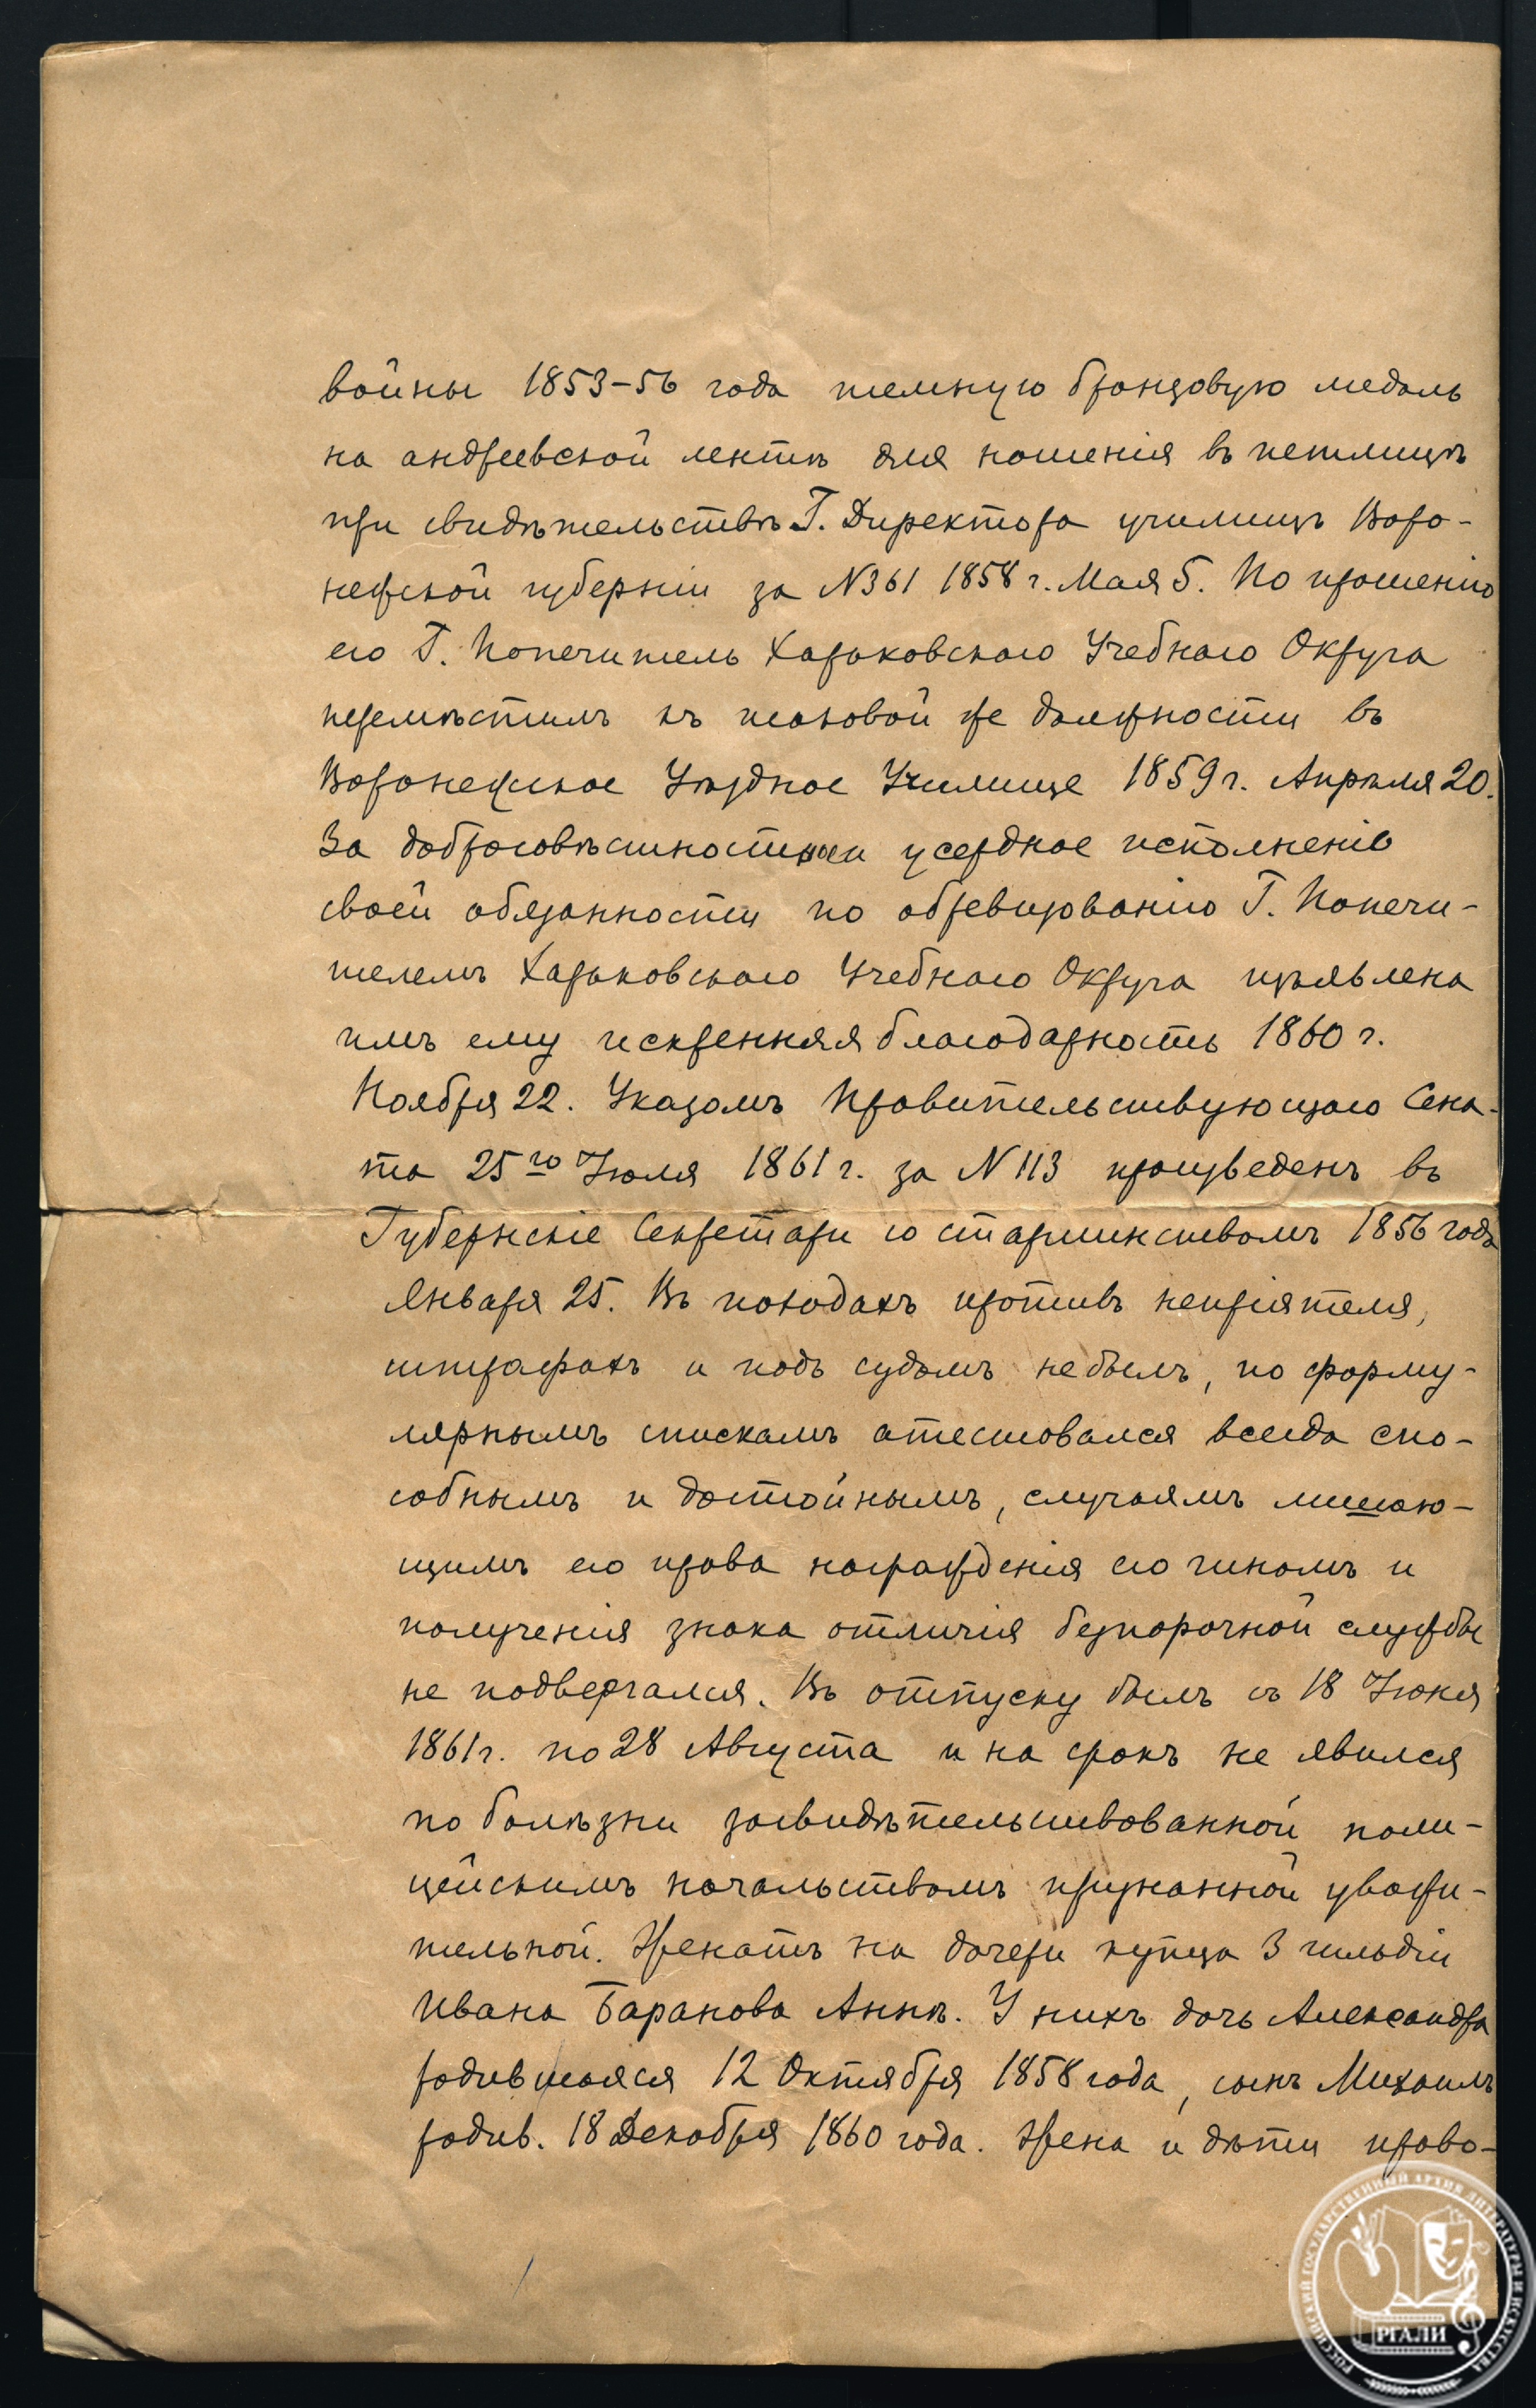 войны 1853–56 года темную бронзовую медаль
на андреевской лентѣ для ношенія въ петлицѣ
при свидѣтельствѣ Г. Директора училищъ Воро-
нежской губерніи за N361 1858 г. Мая 5. По прошенію
его Г. Попечитель Харьковскаго Учебнаго Округа
перемѣстилъ къ таковой же должности въ
Воронежское Уѣздное Училище 1859 г. Апрѣля 20.
За добросовѣстность и усердное исполненіе
своей обязанности по обревизованію Г. Попечи-
телемъ Харьковскаго Учебнаго Округа изъявлена
имъ ему искренняя благодарность 1860 г.
Ноября 22. Указомъ Правительствующаго Сена-
та 25го Іюля 1861 г. за N 113 произведенъ въ
Губернскіе Секретари со старшинствомъ 1856 года
Января 25. Въ походахъ противъ непріятеля,
штрафахъ и подъ судомъ не былъ, по форму-
лярнымъ спискамъ атестовался всегда спо-
собнымъ и достойнымъ, случаямъ лишаю-
щимъ его права награжденія его чиномъ и
полученія знака отличія безпорочной службы
не подвергался. Въ отпуску былъ съ 18 Іюня
1861 г. по 28 Августа и на срокъ не явился
по болѣзни засвидѣтельствованной поли-
цейскимъ начальствомъ признанной уважи-
тельной. Женатъ на дочери купца 3 гильдіи
Ивана Баранова Аннѣ. У нихъ дочь Александра
родившаяся 12 Октября 1858 года, сынъ Михаилъ
родив. 18 Декабря 1860 года. Жена и дѣти право-
РОССИЙСКИЙ ГОСУДАРСТВЕННЫЙ АРХИВ ЛИТЕРАТУРЫ И ИСКУССТВА
РГАЛИ